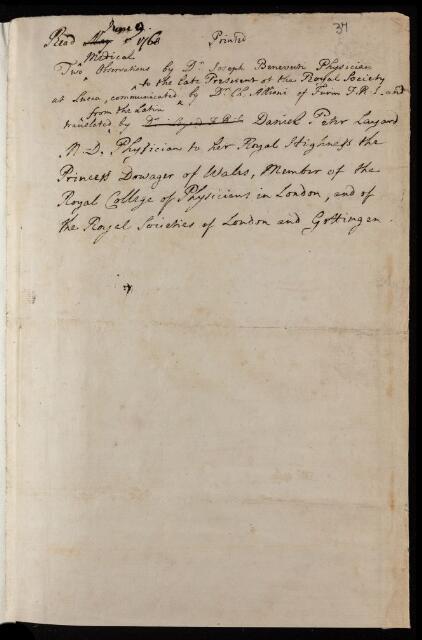 37
June 9.
Read May 1768 Printed
Medical
Two Observations by Dr. Joseph Benevuti Physician
to the late President of the Royal Society
at Lucca, communicated by Dr. Ch. Allioni of Turin F.R.S. and
from the Latin
translated by Dr. Daniel Peter Layard
M.D. Physician to her Royal Highness the
Princess Dowager of Wales, Member of the
Royal College of Physicians in London, and of
the Royal Societies of London and Gottingen.